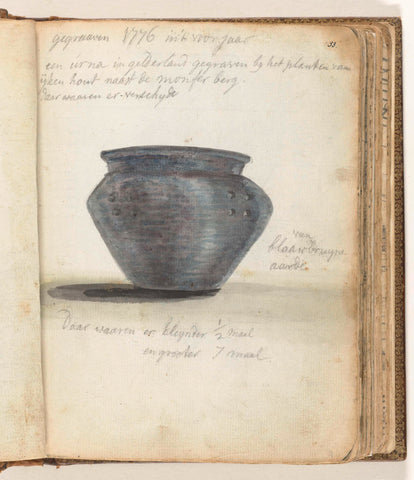 33
gegraaven 1776 in't voorjaar
een urna in gelderland gegraven by het planten van
eyken hout naast de monferberg.
daar waaren er verschyde
van
klaar bruyne
aarde
Daar waaren er kleynder 1/2 maal
en grooter 7 maal